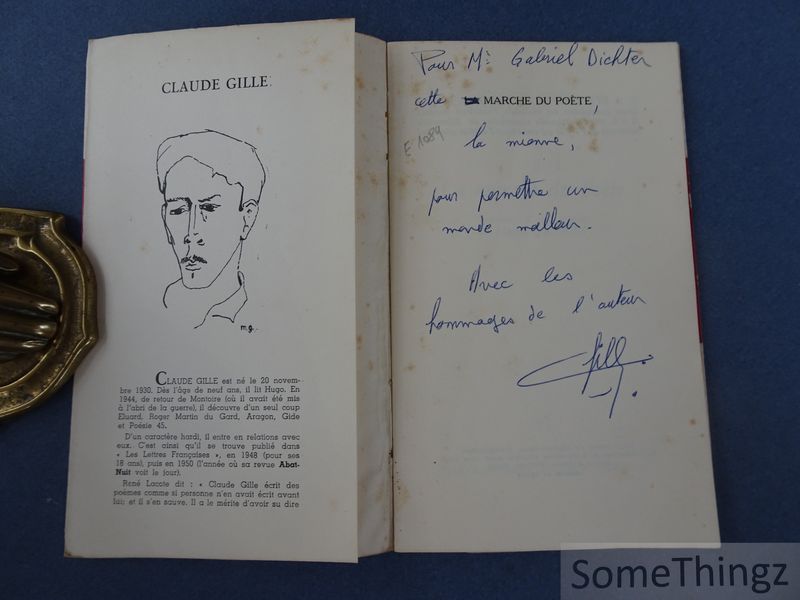 CLAUDE GILLE
m.g.
CLAUDE GILLE est né le 20 novem-
bre 1930. Dès l'âge de neuf ans, il lit Hugo. En
1944, de retour de Montoire (où il avait été mis
à l'abri de la guerre), il découvre d'un seul coup
Eluard, Roger Martin du Gard, Aragon, Gide
et Poésie 45.
D'un caractère hardi, il entre en relations avec
eux. C'est ainsi qu'il se trouve publié dans
« Les Lettres Françaises », en 1948 (pour ses
18 ans), puis en 1950 (l'année où sa revue Abat-
Nuit voit le jour).
René Lacote dit : « Claude Gille écrit des
poèmes comme si personne n'en avait écrit avant
lui; et il s'en sauve. Il a le mérite d'avoir su dire
Pour Mr Gabriel Dichter
cette LA MARCHE DU POÈTE,
E 1084
la mienne,
pour permettre un
monde meilleur.
Avec les
hommages de l'auteur
Gille
SomeThingz